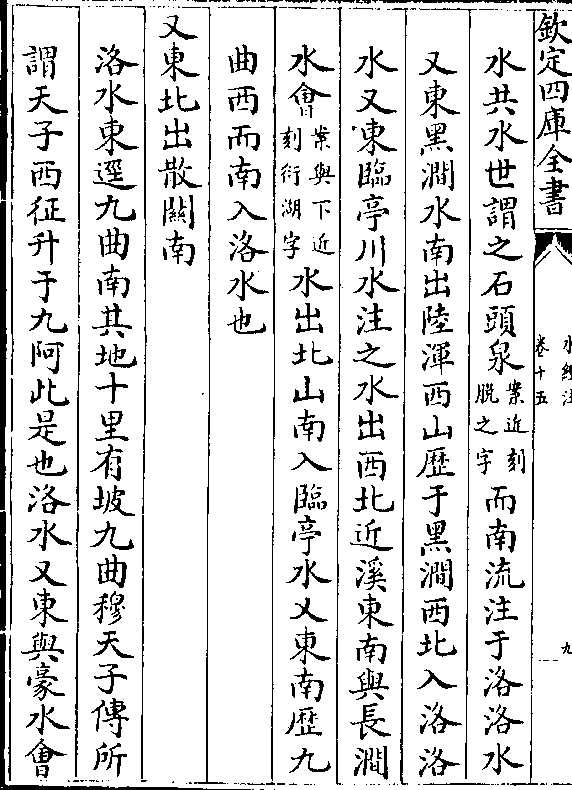 欽定四庫全書
水經注
卷十五
九
水共水世謂之石頭泉案近刻脫之字而南流注于洛洛水
又東黑澗水南出陸渾西山歷于黑澗西北入洛洛
水又東臨亭川水注之水出西北近溪東南與長澗
水會案與下近刻衍湖字水出北山南入臨亭水又東南歷九
曲西而南入洛水也
又東北出散關南
洛水東逕九曲南其地十里有坡九曲穆天子傳所
謂天子西征升于九阿此是也洛水又東與豪水會